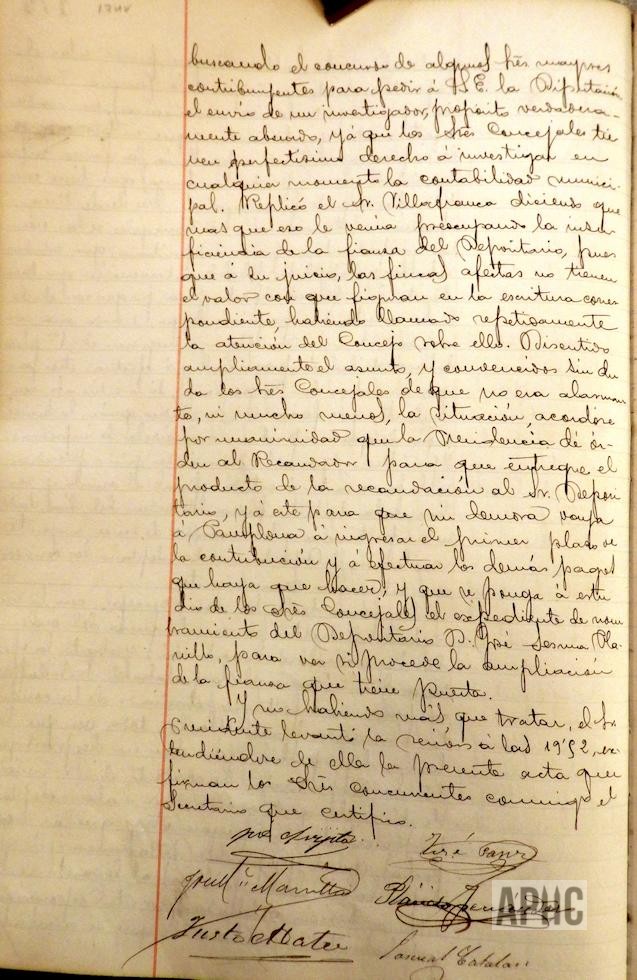 buscando el concurso de algunos Srés mayores
contribuyentes para pedir á S.E. la Diputación
el envío de un investigador, propósito verdadera-
mente absurdo, yá que los Srés Concejales tie
nen perfectísimo derecho á investigar en
cualquier momento la contabilidad munici-
pal. Replicó el Sr. Villafranca diciendo que
mas que eso le venía preocupando la insu
ficiencia de la fianza del Depositario, pues
que á su juicio, las fincas afectas no tienen
el valor con que figuran en la escritura corres
pondiente, habiendo llamado repetidamente
la atención del Concejo sobre ello. Discutido
ampliamente el asunto, y convencidos sin du
da los Srés Concejales de que no era alarman
te, ni mucho menos, la situación, acordóse
por unanimidad que la Presidencia dé ór-
den al Recaudador para que entregue el
producto de la recaudación al Sr. Deposi
tario, y á este para que sin demora vaya
á Pamplona á ingresar el primer plazo de
la contribución y á efectuar los demás pagos
que haya que hacer; y que se ponga á estu
dio de los Srés Concejales el expediente de nom
bramiento del Depositario D. José Sesma
para ver si procede la ampliación
de la fianza que tiene puesta.
Y no habiendo más que tratar, el Sr.
Presidente levantó la sesión á las 19'52, ex
tendiéndose de ella la presente acta que
firman los Srés concurrentes conmigo el
Secretario que certifico.
José
José Mª
Justo Mateo
Pascual Catalan
APHC